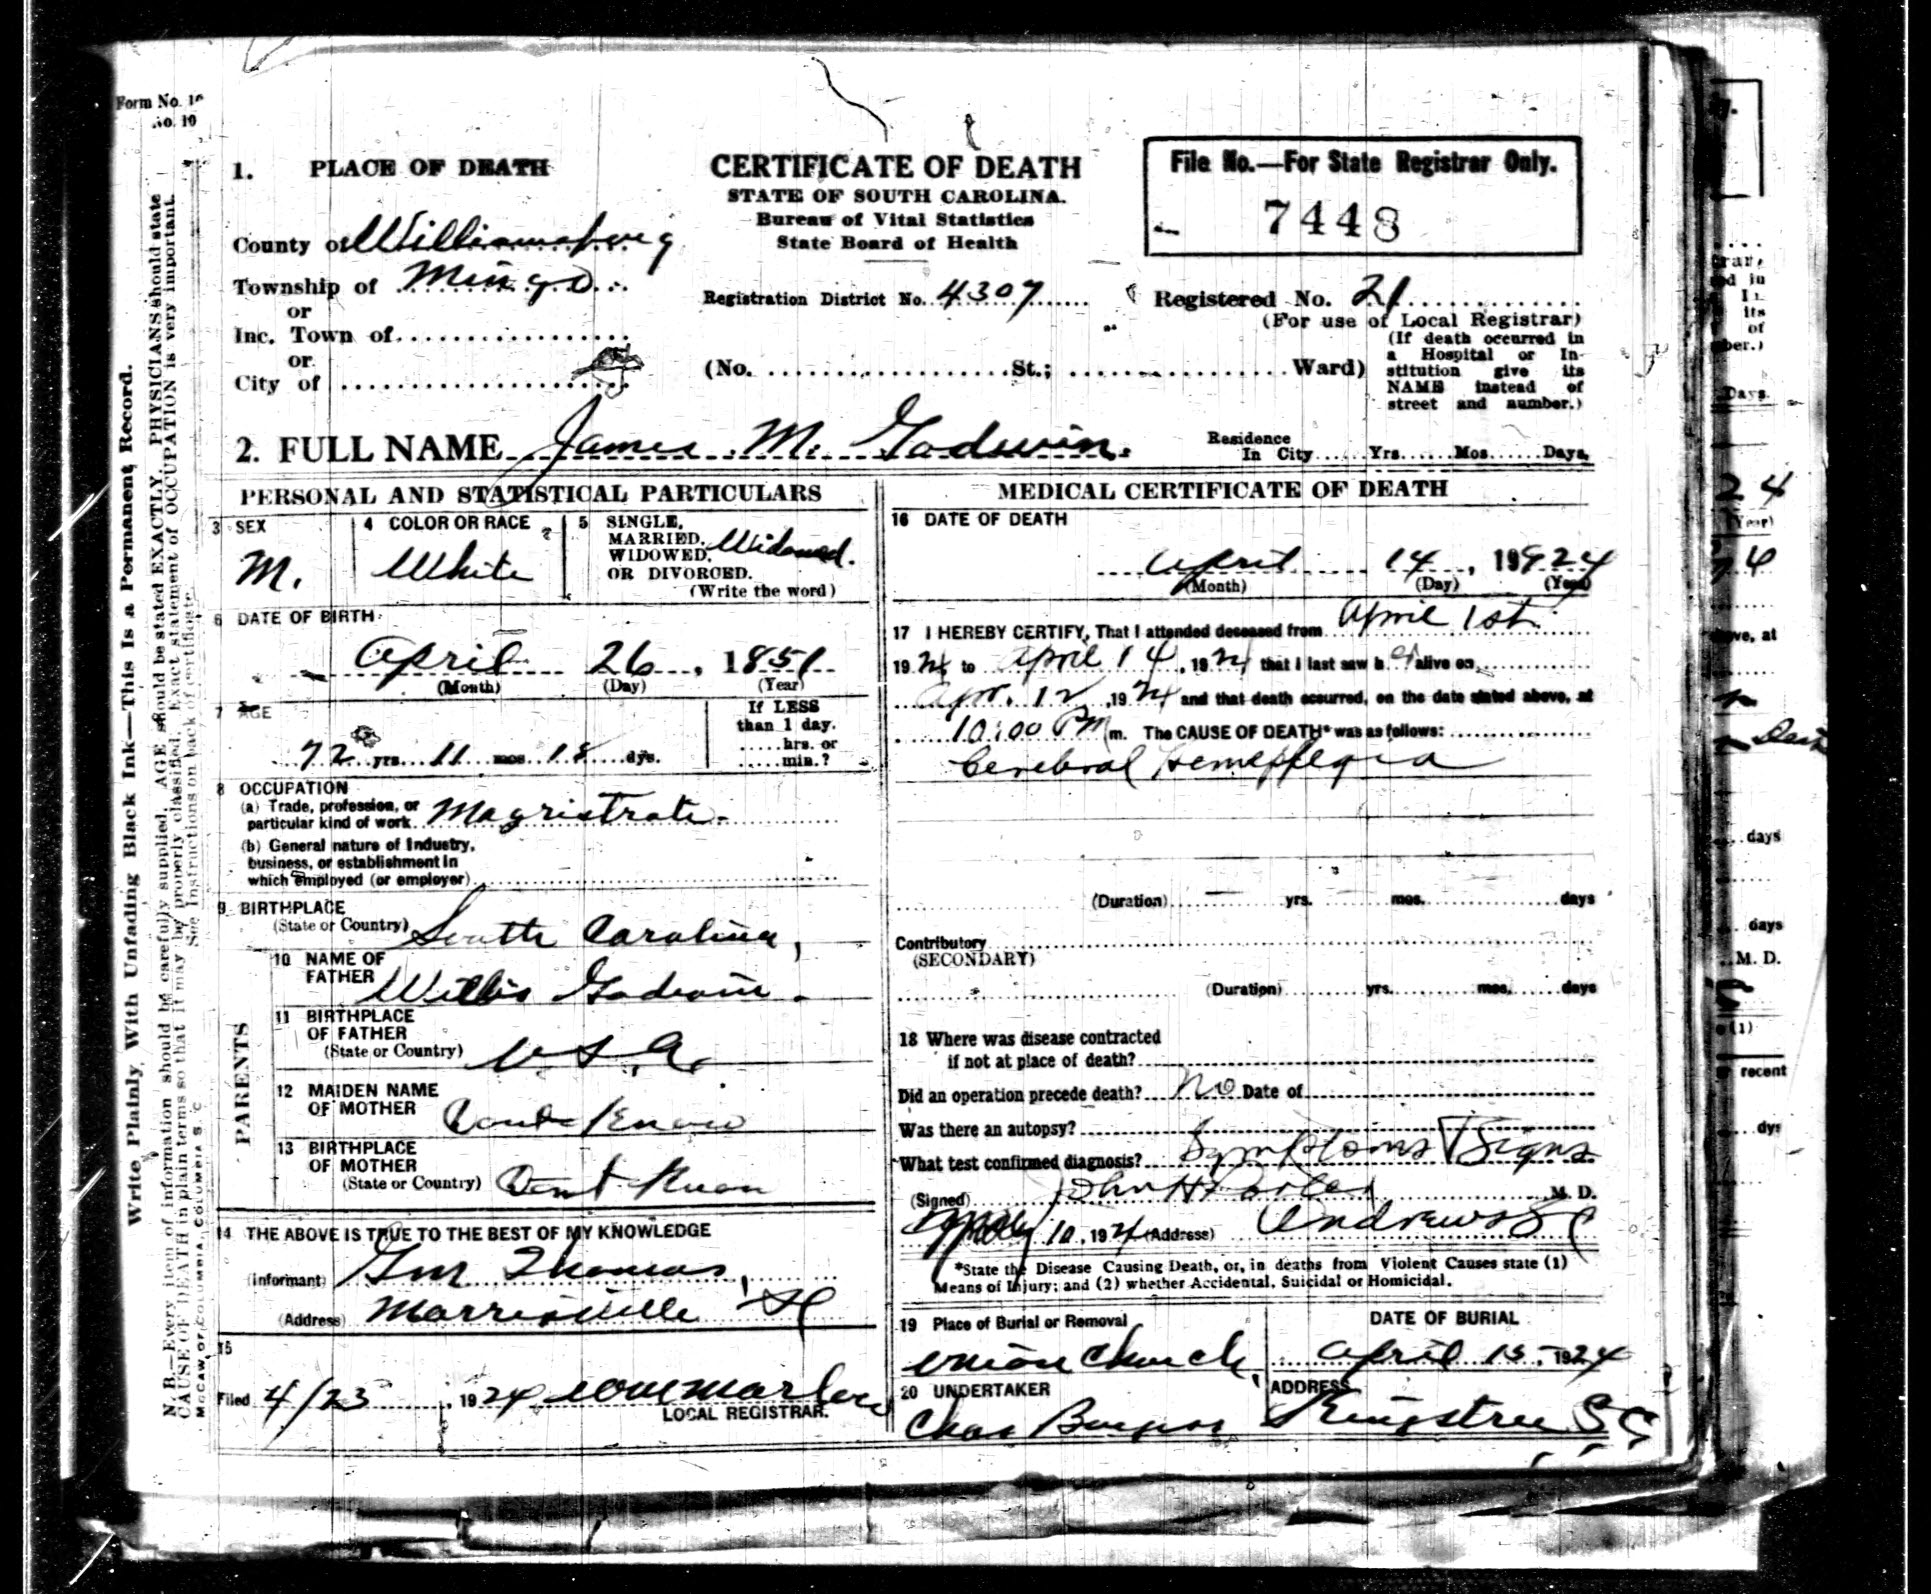 Form No. 10
No. 10
1. PLACE OF DEATH
County of Williamsburg
Township of Mingo
or
Inc. Town of
or
City of
CERTIFICATE OF DEATH
STATE OF SOUTH CAROLINA.
Bureau of Vital Statistics
State Board of Health
Registration District No. 4307
(No. St.; Ward)
File No.—For State Registrar Only.
7448
Registered No. 21
(For use of Local Registrar)
(If death occurred in
a Hospital or In-
stitution give its
NAME instead of
street and number.)
2. FULL NAME James M. Godwin.
Residence
In City Yrs. Mos. Days.
PERSONAL AND STATISTICAL PARTICULARS
3 SEX
M.
4 COLOR OR RACE
White
5 SINGLE,
MARRIED,
WIDOWED,
OR DIVORCED.
(Write the word)
Widowed.
6 DATE OF BIRTH
April 26, 1851
(Month) (Day) (Year)
7 AGE
72 yrs. 11 mos. 18 dys.
If LESS
than 1 day.
hrs. or
min.?
8 OCCUPATION
(a) Trade, profession, or
particular kind of work Magristrate
(b) General nature of Industry,
business, or establishment in
which employed (or employer)
9 BIRTHPLACE
(State or Country) South Carolina,
PARENTS
10 NAME OF
FATHER Willis Godwin
11 BIRTHPLACE
OF FATHER
(State or Country) U.S.A.
12 MAIDEN NAME
OF MOTHER Dont Know
13 BIRTHPLACE
OF MOTHER
(State or Country) Dont Know
14 THE ABOVE IS TRUE TO THE BEST OF MY KNOWLEDGE
(Informant) Thomas,
(Address) Morrisville SC
15
Filed 4/23, 1924
LOCAL REGISTRAR.
MEDICAL CERTIFICATE OF DEATH
16 DATE OF DEATH
April 14, 1924
(Month) (Day) (Year)
17 I HEREBY CERTIFY, That I attended deceased from April 1st
1924 to April 14, 1924 that I last saw h alive on
Apr. 12, 1924 and that death occurred, on the date stated above, at
10:00 PM m. The CAUSE OF DEATH* was as follows:
Cerebral Hemepplegia
(Duration) yrs. mos. days
Contributory
(SECONDARY)
(Duration) yrs. mos. days
18 Where was disease contracted
if not at place of death?
Did an operation precede death? No Date of
Was there an autopsy?
What test confirmed diagnosis? Symptoms & Signs
(Signed) John H M. D.
10, 1924 (Address) Andrews SC
*State the Disease Causing Death, or, in deaths from Violent Causes state (1)
Means of Injury; and (2) whether Accidental, Suicidal or Homicidal.
19 Place of Burial or Removal
Union Church,
DATE OF BURIAL
April 15, 1924
20 UNDERTAKER
Chas
ADDRESS
Kingstree S C
Write Plainly, With Unfading Black Ink—This Is a Permanent Record.
N. B.—Every item of information should be carefully supplied. AGE should be stated EXACTLY. PHYSICIANS should state
CAUSE OF DEATH in plain terms so that it may be properly classified. Exact statement of OCCUPATION is very important.
See instructions on back of certificate.
McCAW OF COLUMBIA, COLUMBIA S. C.